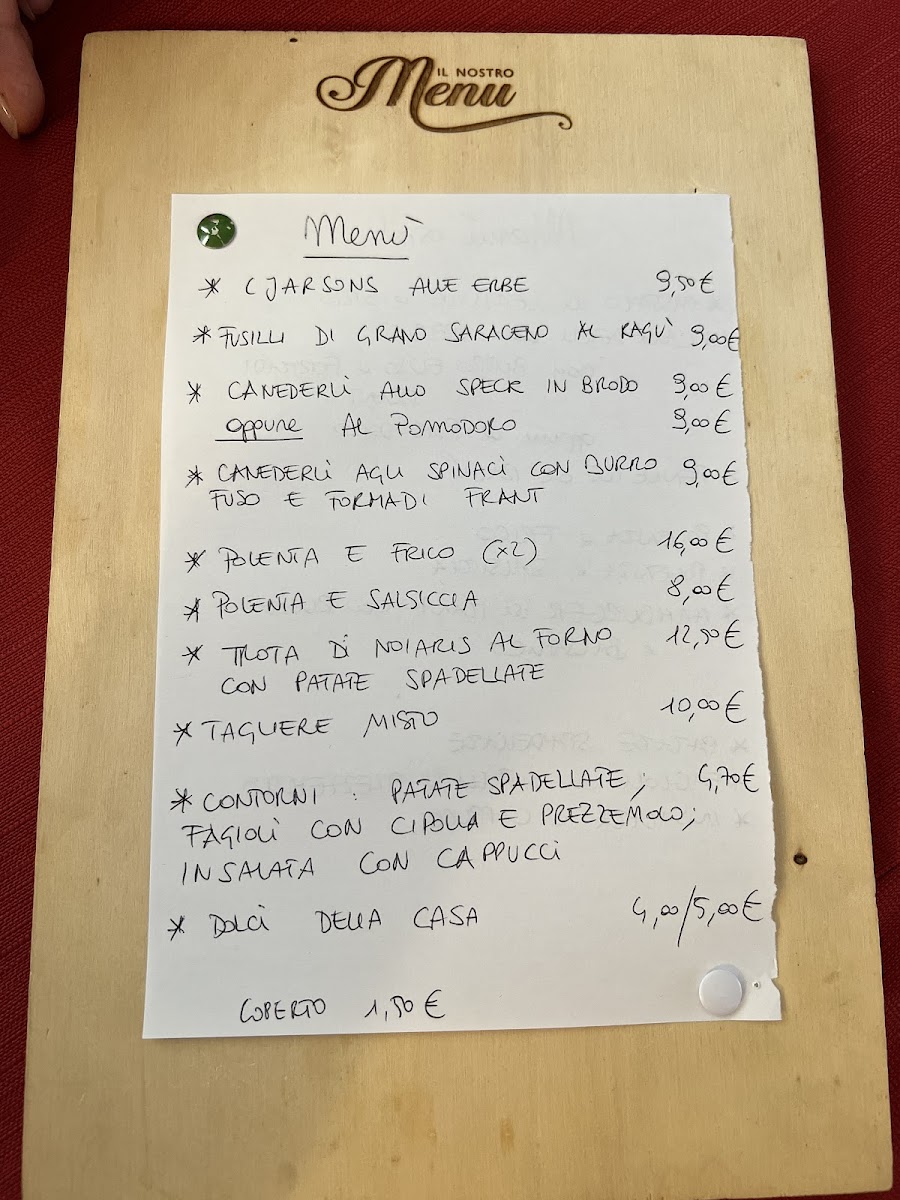 IL NOSTRO
Menu
Menù
* CJARSONS ALLE ERBE 9,50€
* FUSILLI DI GRANO SARACENO AL RAGÙ 9,00€
* CANEDERLI ALLO SPECK IN BRODO 9,00€
oppure AL POMODORO 9,00€
* CANEDERLI AGLI SPINACI CON BURRO 9,00€
FUSO E FORMADI FRANT
* POLENTA E FRICO (x2) 16,00€
* POLENTA E SALSICCIA 8,00€
* TROTA DI NOIARIS AL FORNO 12,50€
CON PATATE SPADELLATE
* TAGLIERE MISTO 10,00€
* CONTORNI : PATATE SPADELLATE; 4,70€
FAGIOLI CON CIPOLLA E PREZZEMOLO;
INSALATA CON CAPPUCCI
* DOLCI DELLA CASA 4,00/5,00€
COPERTO 1,50€